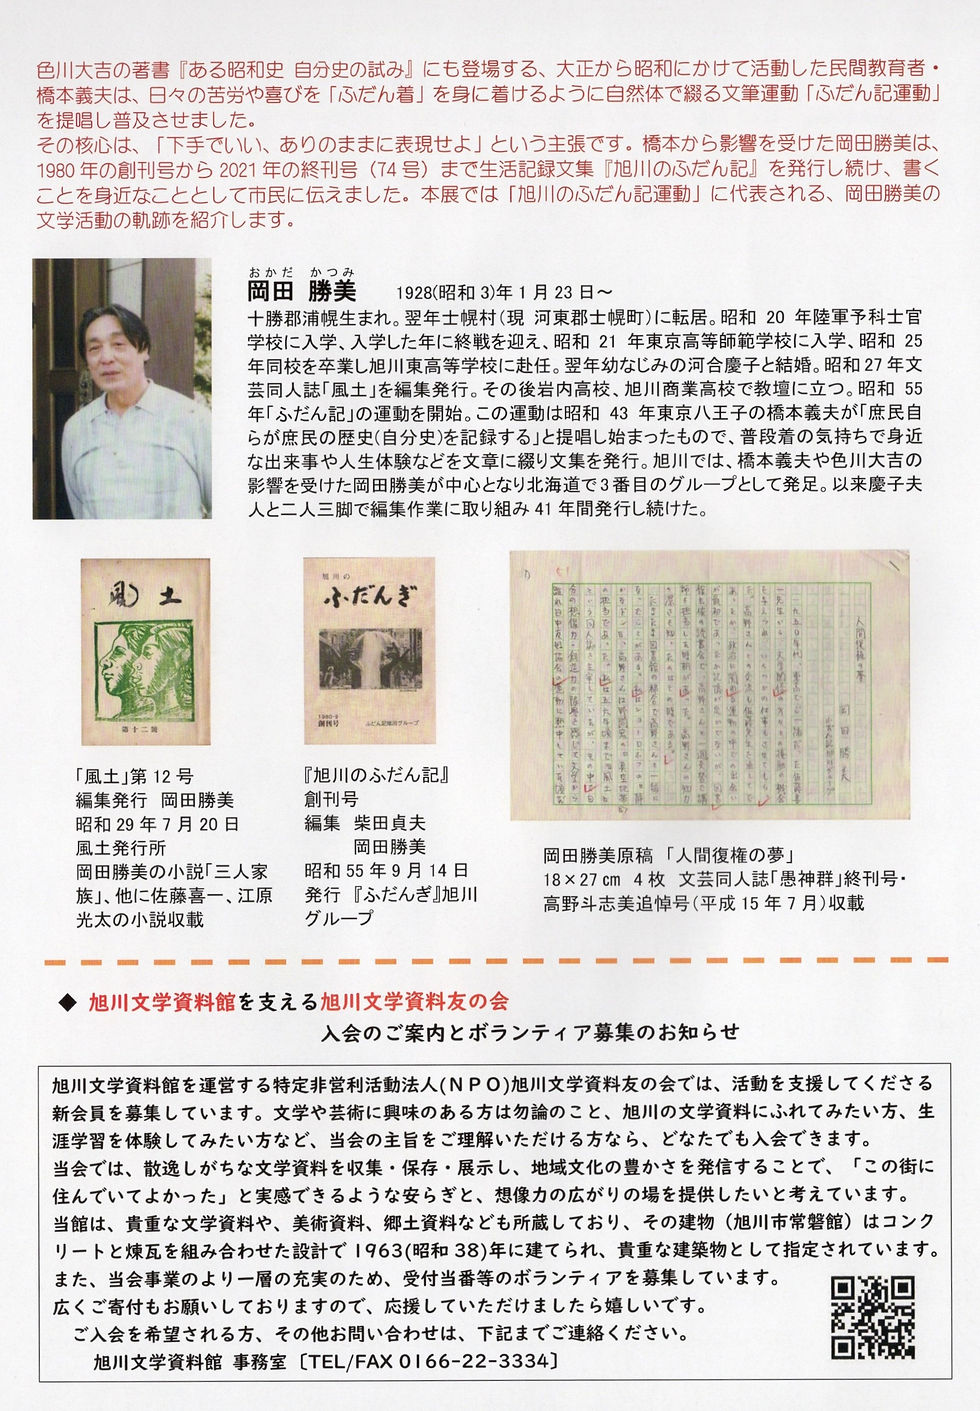 色川大吉の著書『ある昭和史 自分史の試み』にも登場する、大正から昭和にかけて活動した民間教育者・
橋本義夫は、日々の苦労や喜びを「ふだん着」を身に着けるように自然体で綴る文筆運動「ふだん記運動」
を提唱し普及させました。
その核心は、「下手でいい、ありのままに表現せよ」という主張です。橋本から影響を受けた岡田勝美は、
1980年の創刊号から2021年の終刊号（74号）まで生活記録文集『旭川のふだん記』を発行し続け、書く
ことを身近なこととして市民に伝えました。本展では「旭川のふだん記運動」に代表される、岡田勝美の
文学活動の軌跡を紹介します。
おかだ かつみ
岡田 勝美 1928(昭和3)年1月23日～
十勝郡浦幌生まれ。翌年士幌村(現 河東郡士幌町)に転居。昭和 20 年陸軍予科士官
学校に入学、入学した年に終戦を迎え、昭和 21 年東京高等師範学校に入学、昭和 25
年同校を卒業し旭川東高等学校に赴任。翌年幼なじみの河合慶子と結婚。昭和27年文
芸同人誌「風土」を編集発行。その後岩内高校、旭川商業高校で教壇に立つ。昭和 55
年「ふだん記」の運動を開始。この運動は昭和 43 年東京八王子の橋本義夫が「庶民自
らが庶民の歴史(自分史)を記録する」と提唱し始まったもので、普段着の気持ちで身近
な出来事や人生体験などを文章に綴り文集を発行。旭川では、橋本義夫や色川大吉の
影響を受けた岡田勝美が中心となり北海道で3番目のグループとして発足。以来慶子夫
人と二人三脚で編集作業に取り組み41年間発行し続けた。
風土
第十二號
旭川の
ふだんぎ
1980・9
創刊号
ふだん記旭川グループ
人間復権の夢
岡田勝美
「風土」第12号
編集発行 岡田勝美
昭和29年7月20日
風土発行所
岡田勝美の小説「三人家
族」、他に佐藤喜一、江原
光太の小説収載
『旭川のふだん記』
創刊号
編集 柴田貞夫
岡田勝美
昭和55年9月14日
発行 『ふだんぎ』旭川
グループ
岡田勝美原稿 「人間復権の夢」
18×27㎝ 4枚 文芸同人誌「愚神群」終刊号・
高野斗志美追悼号(平成15年7月)収載
◆ 旭川文学資料館を支える旭川文学資料友の会
入会のご案内とボランティア募集のお知らせ
旭川文学資料館を運営する特定非営利活動法人(ＮＰＯ)旭川文学資料友の会では、活動を支援してくださる
新会員を募集しています。文学や芸術に興味のある方は勿論のこと、旭川の文学資料にふれてみたい方、生
涯学習を体験してみたい方など、当会の主旨をご理解いただける方なら、どなたでも入会できます。
当会では、散逸しがちな文学資料を収集・保存・展示し、地域文化の豊かさを発信することで、「この街に
住んでいてよかった」と実感できるような安らぎと、想像力の広がりの場を提供したいと考えています。
当館は、貴重な文学資料や、美術資料、郷土資料なども所蔵しており、その建物（旭川市常磐館）はコンク
リートと煉瓦を組み合わせた設計で1963(昭和38)年に建てられ、貴重な建築物として指定されています。
また、当会事業のより一層の充実のため、受付当番等のボランティアを募集しています。
広くご寄付もお願いしておりますので、応援していただけましたら嬉しいです。
ご入会を希望される方、その他お問い合わせは、下記までご連絡ください。
旭川文学資料館 事務室〔TEL/FAX 0166-22-3334〕